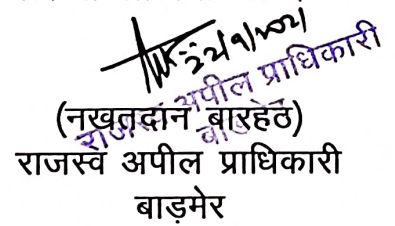 22/9/2021
राजस्व अपील प्राधिकारी
बाड़मेर
(नखतदान बारहेठ)
राजस्व अपील प्राधिकारी
बाड़मेर